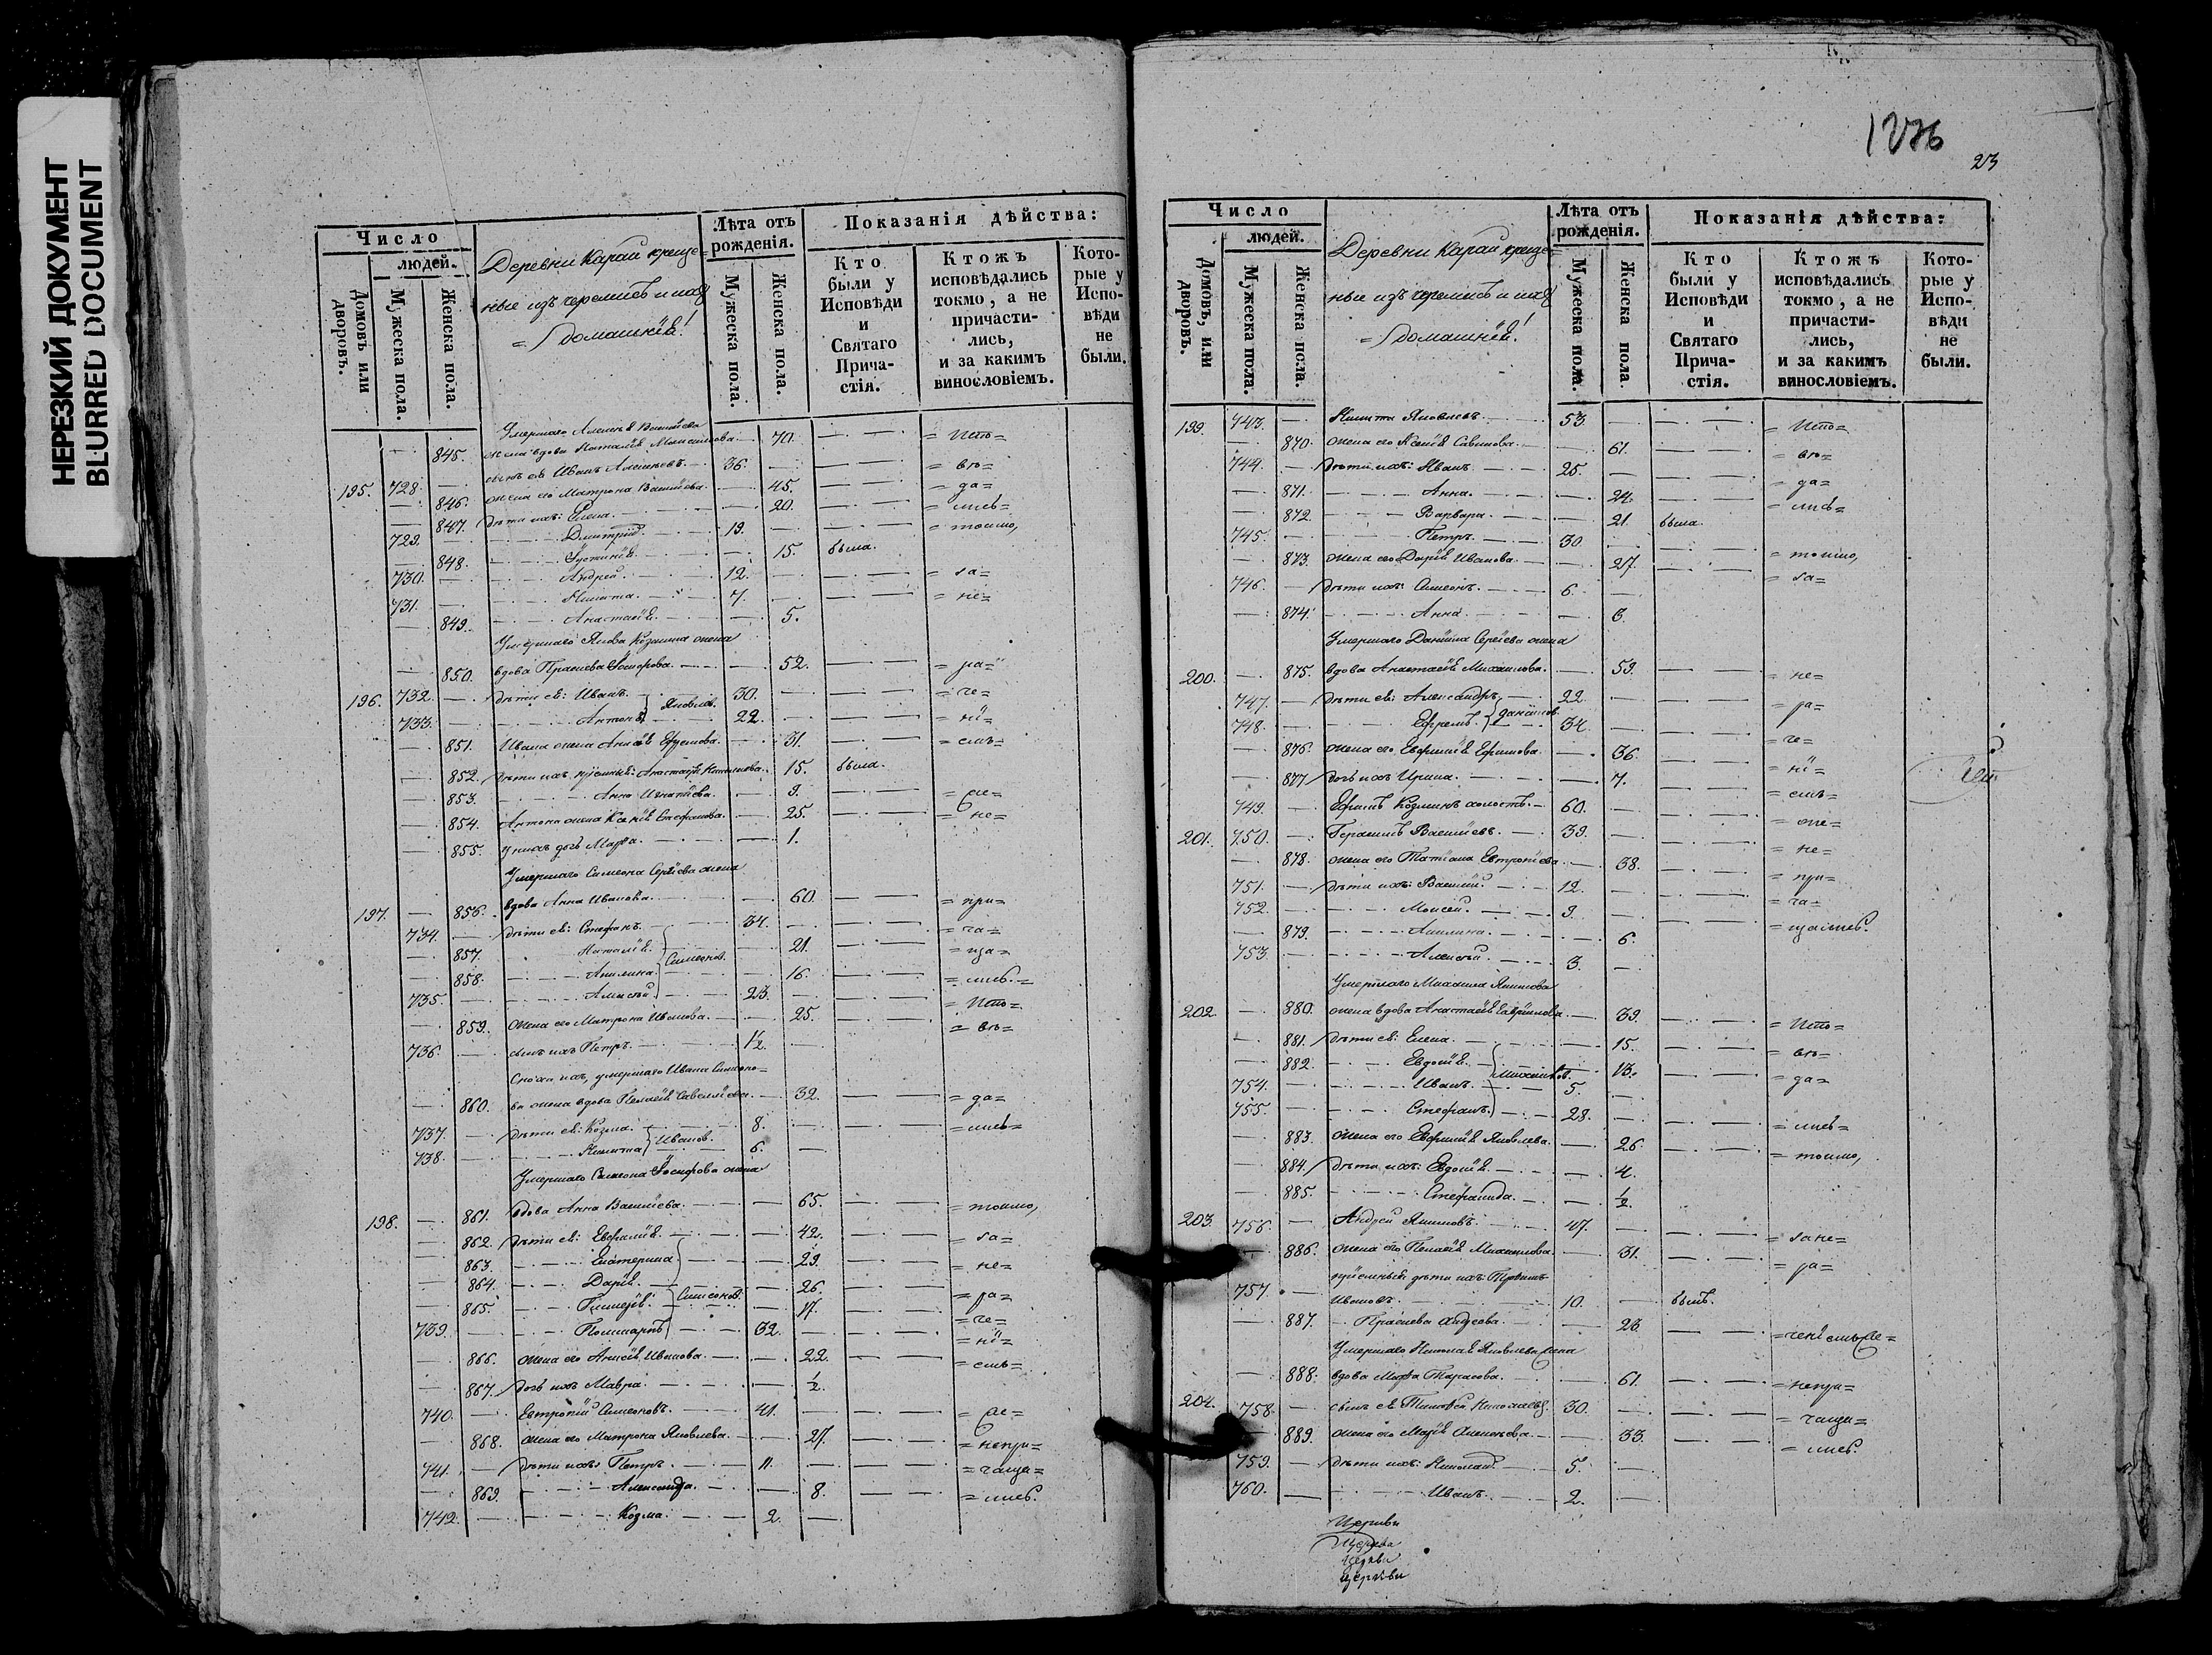 НЕРЕЗКИЙ ДОКУМЕНТ
BLURRED DOCUMENT
Число
людей.
Домовъ или дворовъ.
Мужеска пола.
Женска пола.
Деревни Карай креще=
ные изъ черемисъ и ихъ
= домашнія!
Лѣта отъ рожденія.
Мужеска пола.
Женска пола.
Показанія дѣйства:
Кто были у Исповѣди и Святаго Прича-стія.
Ктожъ исповѣдались токмо, а не причасти-лись, и за какимъ винословіемъ.
Кото-рые у Испо-вѣди не были.
Умершаго Алексѣя Васильева
845. жена вдова Наталія 70. = Испо=
195. 728. — сынъ ея Иванъ Алексѣевъ. 36. = вѣ=
— 846. жена его Матрона Васильева. 45. = да=
— 847. дѣти ихъ: Елена. 20. = лись=
729. — Дмитрій. 19. = токмо,
— 848. Іустинія. 15. была.
730. — Андрей. 12. = за=
731. — Никита. 7. = не=
— 849. Анастасія. 5.
Умершаго Якова Козмина жена
— 850. вдова Праскева Іосифова. 52. = ра=
196. 732. — дѣти ея: Иванъ. Яковлев. 30. = че=
733. — Антонъ 22. = ні=
— 851. Ивана жена Анисія Ефремова. 31. = емъ=
— 852. дѣти ихъ пріемныя: Анастасія 15. была.
— 853. Анна Игнатіева. 9. = ѡе=
— 854. Антона жена Ксенія Стефанова. 25. = не=
— 855. у нихъ дочь Марѳа. 1.
Умершаго Симеона Сергѣева жена
197. — 856. вдова Анна Иванова. 60. = при=
734. — дѣти ея: Стефанъ. 34. = ча=
— 857. Наталія. Симеонов. 21. = ща=
— 858. Акилина. 16. = лись. =
735. — Алексѣй. 23. = Испо=
— 859. жена его Матрона Иванова. 25. = вѣ=
736. — сынъ ихъ Петръ. 1½.
Сноха ихъ, умершаго Ивана Симеоно=
— 860. ва жена вдова Пелагія Савельева. 32. = да=
737. — дѣти ея: Козма. 8. = лись=
738. — Никита Иванов. 6.
Умершаго Симеона Іосифова жена
198. — 861. вдова Анна Васильева. 65. = токмо,
— 862. дѣти ея: Евфимія. 42. = за=
— 863. Екатерина 29. = не=
— 864. Дарія. Симеонов. 26. = ра=
— 865. Гликерія. 17. = че=
739. — Поликарпъ 32. = ні=
— 866. жена его Анисія Иванова. 22. = емъ=
— 867. дочь ихъ Мавра. ½.
740. — Евтропій Симеоновъ. 41. = ѡе=
— 868. жена его Матрона Яковлева. 27. = непри=
741. — дѣти ихъ: Петръ. 11. = чаща=
— 869. Александра. 8. = лись.
742. — Козма. 2.
1276
23
Число
людей.
Домовъ, или дворовъ.
Мужеска пола.
Женска пола.
Деревни Карай креще=
ные изъ черемисъ и ихъ
= домашнія!
Лѣта отъ рожденія.
Мужеска пола.
Женска пола.
Показанія дѣйства:
Кто были у Исповѣди и Святаго Прича-стія.
Ктожъ исповѣдались токмо, а не причасти-лись, и за какимъ винословіемъ.
Кото-рые у Испо-вѣди не были.
199. 743. — Никита Яковлевъ. 53. = Испо=
— 870. жена его Ксенія Савинова. 61. = вѣ=
744. — дѣти ихъ: Иванъ. 25. = да=
— 871. Анна. 24. = лись=
— 872. Варвара. 21. была.
745. — Петръ. 30.
— 873. жена его Дарія Иванова. 27. = токмо,
746. — дѣти ихъ: Симеонъ. 6. = за=
— 874. Анна. 3.
Умершаго Даніила Сергѣева жена
200. — 875. вдова Анастасія Михаилова. 59. = не=
747. — дѣти ея: Александръ, Даніилов. 22. = ра=
748. — Ефремъ. 34. = че=
— 876. жена его Евфимія Ефимова. 36. = ні=
— 877. дочь ихъ Ирина. 7. = емъ=
749. — Ефимъ Козминъ холостъ. 60. = оне=
201. 750. — Герасимъ Васильевъ. 39. = не=
— 878. жена его Татіана Евтропіева. 38. = при=
751. — дѣти ихъ: Василій. 12. = ча=
752. — Моисей. 9. = щались.
— 879. Акилина. 6.
753. — Алексѣй. 3.
Умершаго Михаила Якимова
202. — 880. жена вдова Анастасія Гавриилова. 39. = Испо=
— 881. дѣти ея: Елена. 15. = вѣ=
— 882. Евдокія. Михаилов. 13. = да=
754. — Иванъ. 5.
755. — Стефанъ. 28. = лись=
— 883. жена его Евфимія Яковлева. 26. = токмо,
— 884. дѣти ихъ: Евдокія. 4.
— 885. Стефанида. ½.
203. 756. — Андрей Якимовъ. 47. = зане=
— 886. жена его Пелагія Михаилова. 31. = ра=
пріемныя дѣти ихъ:
757. — Ивановъ. 10. былъ.
— 887. Праскева Андреева. 23. = ченіемъ ѡе=
Умершаго Николая Яковлева жена
— 888. вдова Марѳа Тарасова. 61. = непри=
204. 758. — сынъ ея Тимоѳей Николаевъ. 30. = чаща=
— 889. жена его Марія Алексѣева. 33. = лись.
759. — дѣти ихъ: Николай. 5.
760. — Иванъ. 2.
Церкви
Церкви
Церкви
Церкви